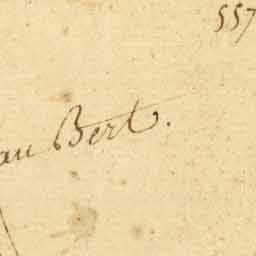 557
au Bert.